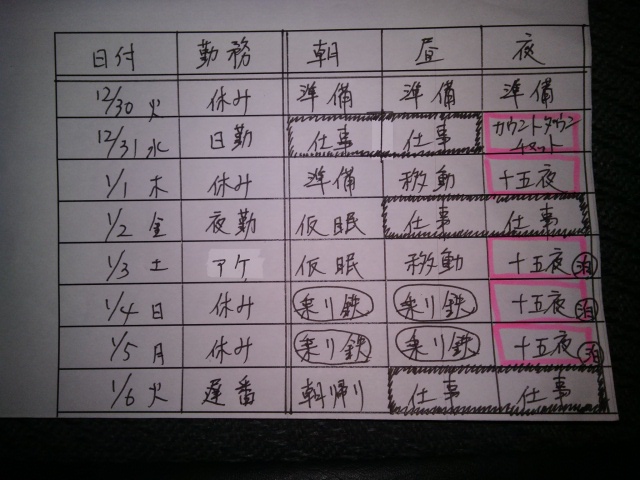 日付 勤務 朝 昼 夜
12/30 火 休み 準備 準備 準備
12/31 水 日勤 仕事 仕事 カウントダウン
チャット
1/1 木 休み 準備 移動 十五夜
1/2 金 夜勤 仮眠 仕事 仕事
1/3 土 アケ 仮眠 移動 十五夜 泊
1/4 日 休み 乗り鉄 乗り鉄 十五夜 泊
1/5 月 休み 乗り鉄 乗り鉄 十五夜 泊
1/6 火 遅番 朝帰り 仕事 仕事